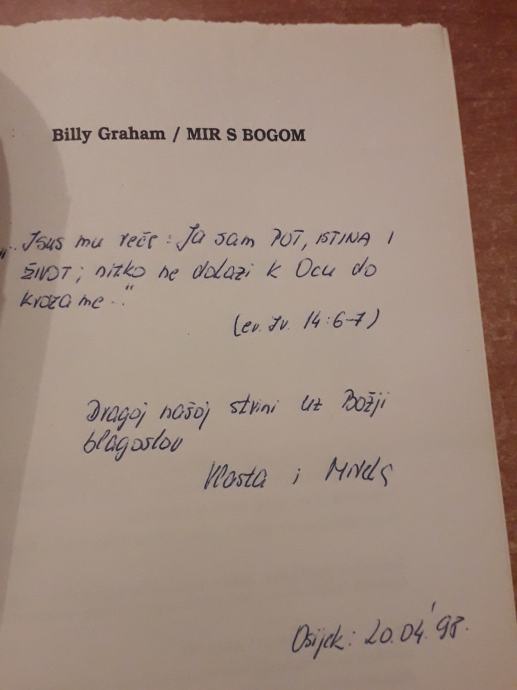 Billy Graham / MIR S BOGOM
„.. Isus mu reče: Ja sam PUT, ISTINA I
ŽIVOT; nitko ne dolazi k Ocu do
kroza me.."
(ev. Iv. 14:6-7)
Dragoj našoj strini uz Božji
blagoslov
Vlasta i
Osijek: 20.04.'98.